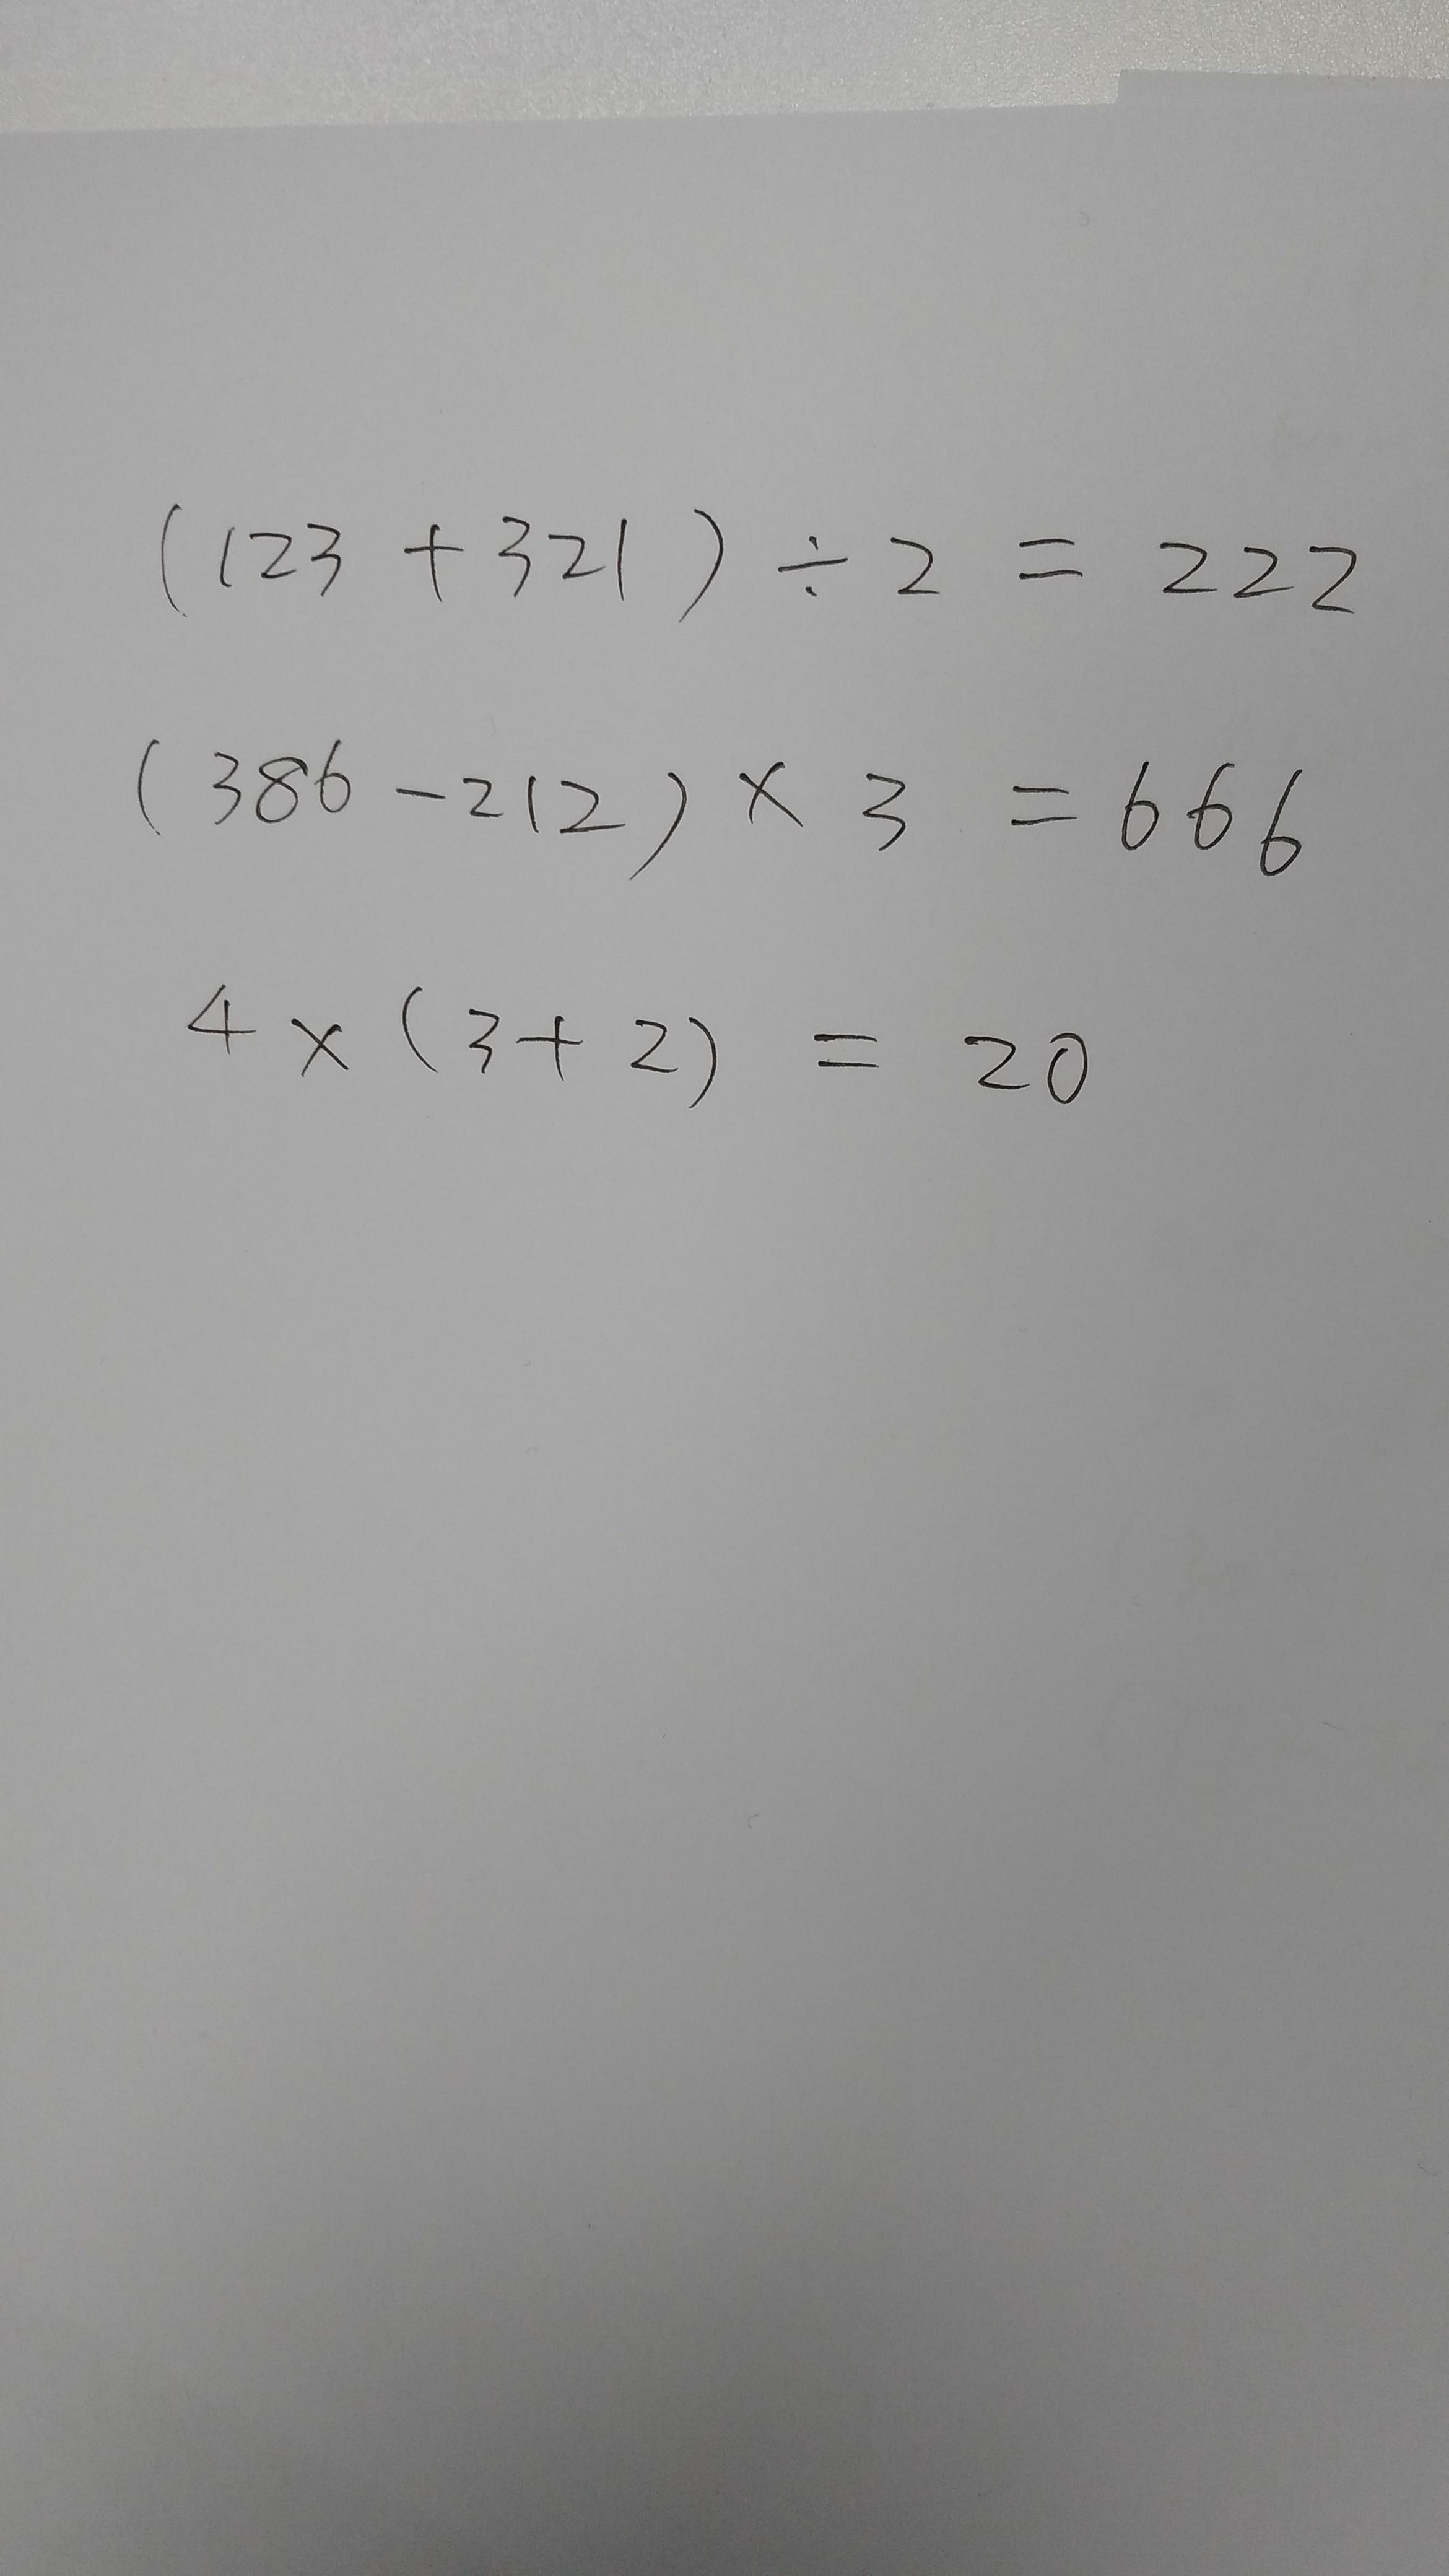 (123 + 321) ÷ 2 = 222
(386 - 212) × 3 = 666
4 × (3 + 2) = 20